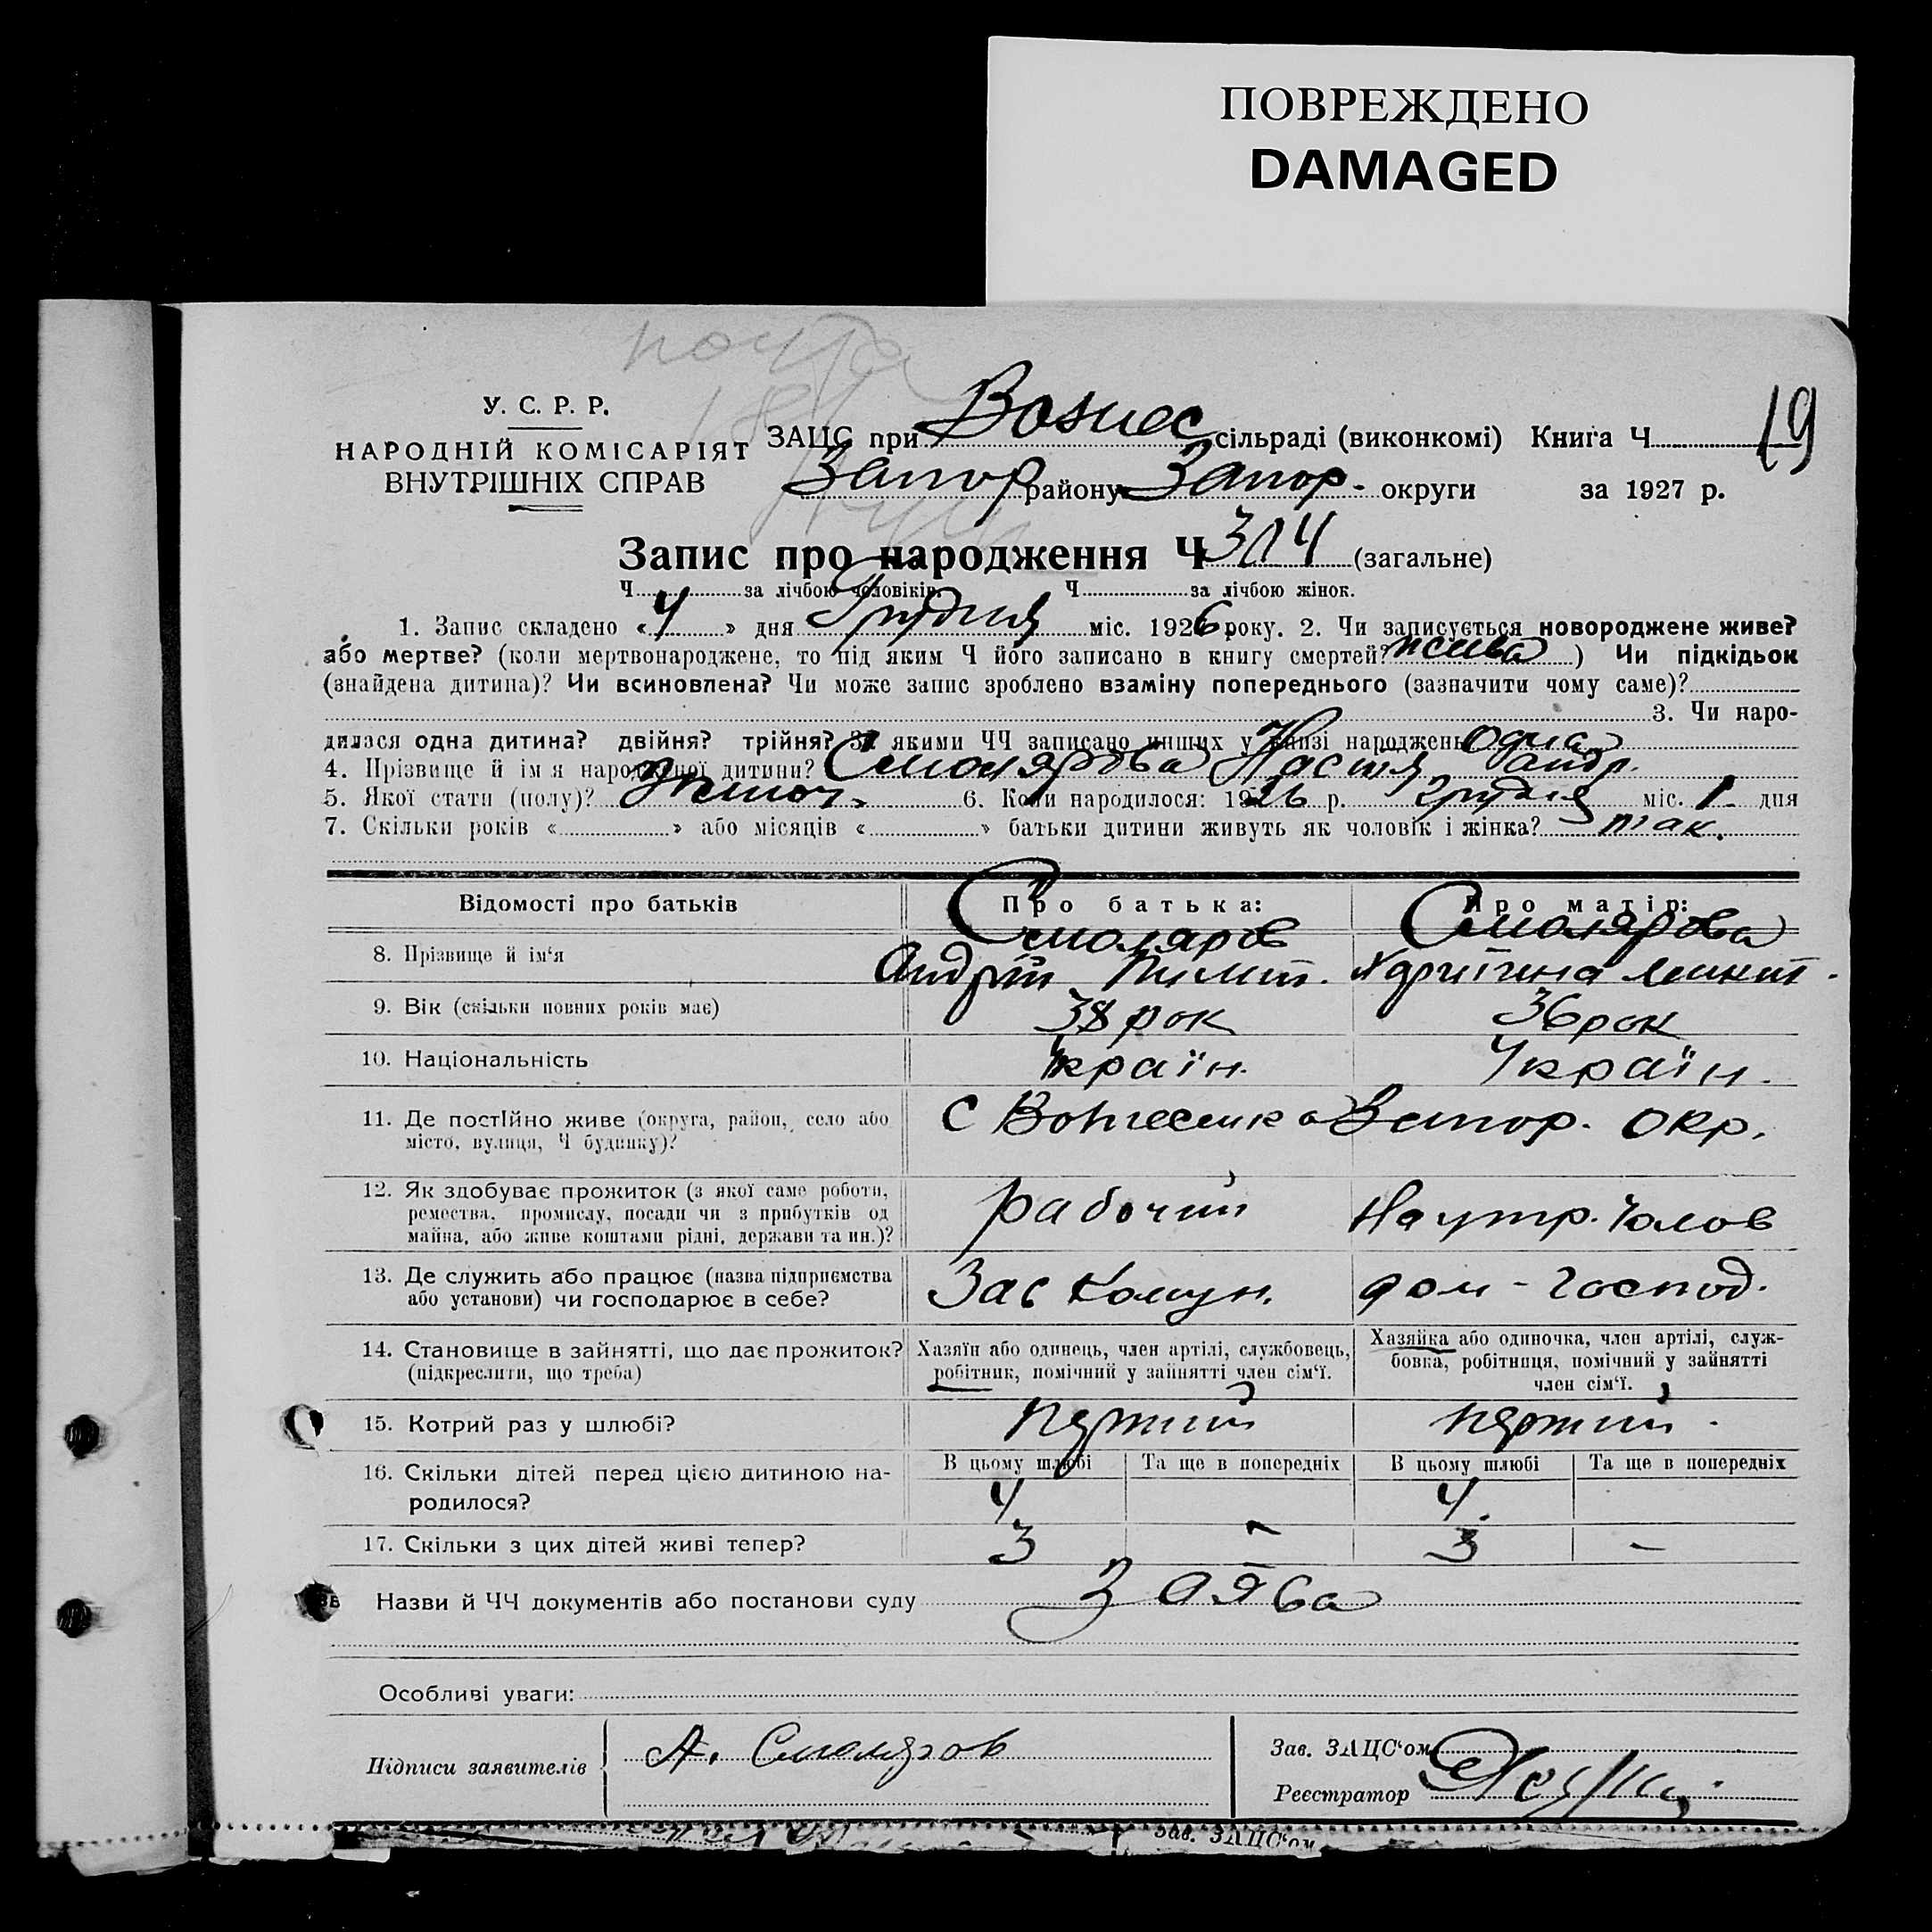 ПОВРЕЖДЕНО
DAMAGED
почта
У. С. Р. Р.
НАРОДНІЙ КОМІСАРІЯТ
ВНУТРІШНІХ СПРАВ
ЗАЦС при Вознес сільраді (виконкомі) Книга Ч. 19
Запор району Запор. округи за 1927 р.
Запис про народження Ч 314 (загальне)
Ч. за лічбою чоловіків. Ч. за лічбою жінок.
1. Запис складено «4» дня Грудня міс. 1926 року. 2. Чи записується новороджене живе?
або мертве? (коли мертвонароджене, то під яким Ч його записано в книгу смертей? жива) Чи підкідьок
(знайдена дитина)? Чи всиновлена? Чи може запис зроблено взаміну попереднього (зазначити чому саме)?
3. Чи наро-
дилася одна дитина? двійня? трійня? За якими ЧЧ записано инших у книзі народжень одна
4. Прізвище й ім'я народженої дитини? Смолярова Настя Андр.
5. Якої стати (полу)? жіноч. 6. Коли народилося: 1926 р. Грудня міс. 1 дня
7. Скільки років « » або місяців « » батьки дитини живуть як чоловік і жінка? так.
Відомості про батьків Про батька: Про матір:
8. Прізвище й ім'я Смоляров Смолярова
Андрій Тимит.
9. Вік (скільки повних років має) 38 рок 36 рок
10. Національність Україн. Україн.
11. Де постійно живе (округа, район, село або С Вознесенка Запор. окр.
місто, вулиця, Ч будинку)?
12. Як здобуває прожиток (з якої саме роботи, рабочий На утр. чолов
ремества, промислу, посади чи з прибутків од
майна, або живе коштами рідні, держави та ин.)?
13. Де служить або працює (назва підприємства Зас Комун. дом - господ.
або установи) чи господарює в себе?
14. Становище в зайнятті, що дає прожиток? Хазяїн або одинець, член артілі, службовець, Хазяйка або одиночка, член артілі, служ-
(підкреслити, що треба) робітник, помічний у зайнятті член сім'ї. бовка, робітниця, помічний у зайнятті
член сім'ї.
15. Котрий раз у шлюбі? перший перший
16. Скільки дітей перед цією дитиною на- В цьому шлюбі Та ще в попередніх В цьому шлюбі Та ще в попередніх
родилося? 4 4.
17. Скільки з цих дітей живі тепер? 3 - 3 -
Назви й ЧЧ документів або постанови суду Заява
Особливі уваги:
Підписи заявителів А. Смоляров
Зав. ЗАЦС'ом
Реєстратор
Зав. ЗАЦС'ом